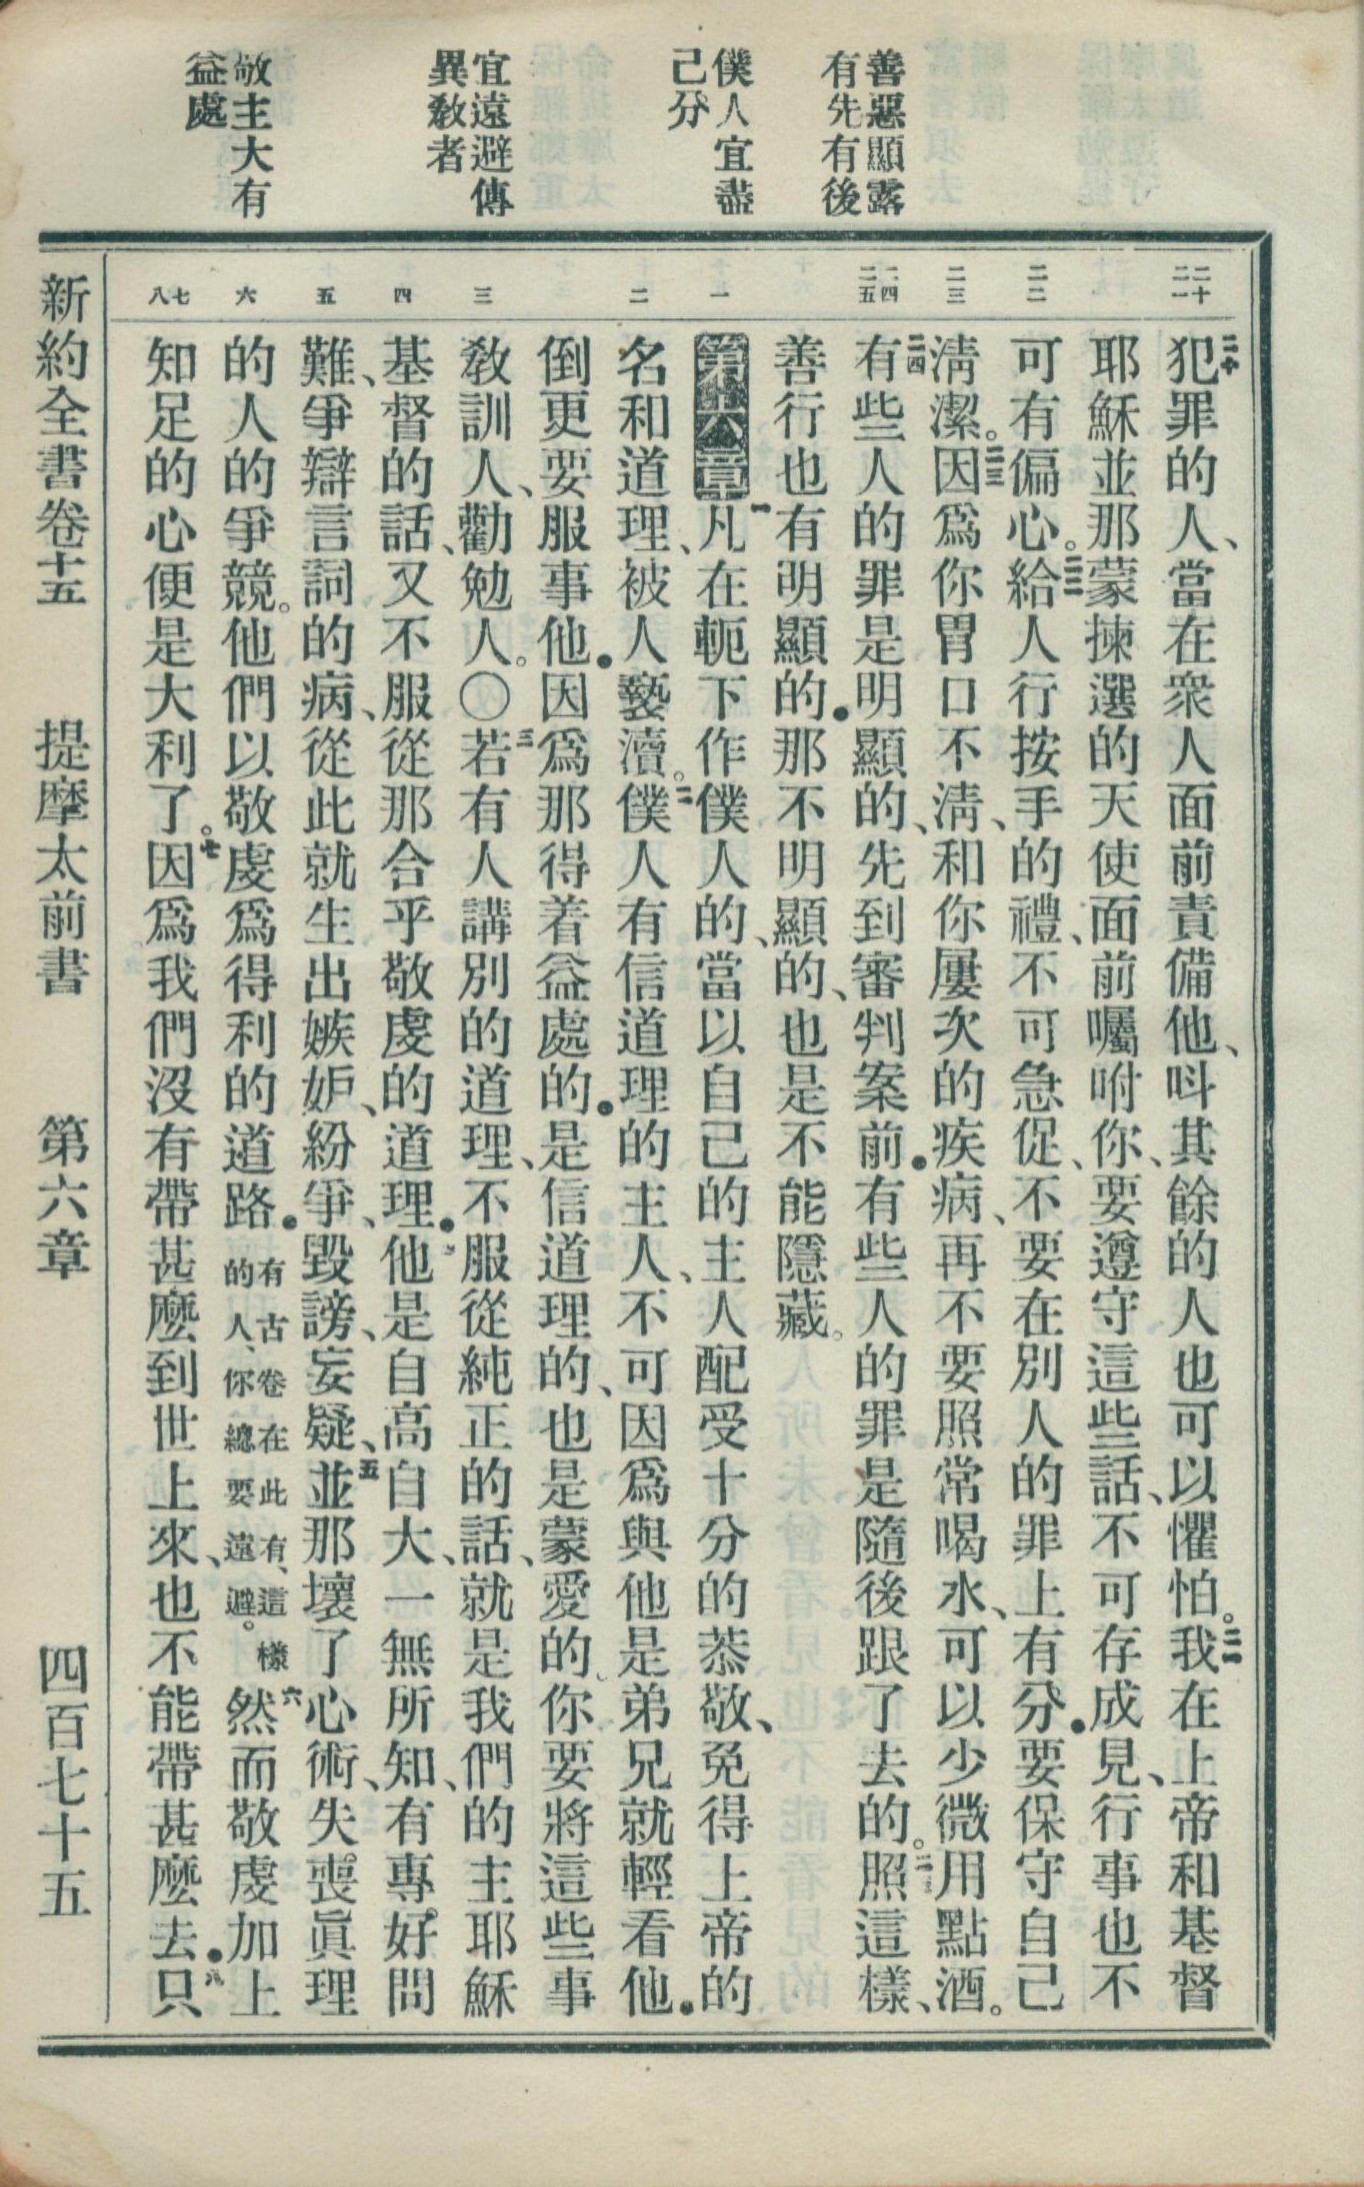 善惡顯露
有先有後
僕人宜盡
己分
宜遠避傳
異敎者
敬主大有
益處
二十 二一
二二
二三
二四 二五
一
二
三
四
五
六
七 八
二十犯罪的人、當在衆人面前責備他、呌其餘的人也可以懼怕。二一我在上帝和基督
耶穌並那蒙揀選的天使面前囑咐你、要遵守這些話、不可存成見、行事也不
可有偏心。二二給人行按手的禮、不可急促、不要在別人的罪上有分.要保守自己
淸潔。二三因爲你胃口不淸、和你屢次的疾病、再不要照常喝水、可以少微用點酒。
二四有些人的罪是明顯的、先到審判案前.有些人的罪是隨後跟了去的。二五照這樣、
善行也有明顯的.那不明顯的、也是不能隱藏。
第六章 一凡在軛下作僕人的、當以自己的主人配受十分的恭敬、免得上帝的
名和道理、被人褻瀆。二僕人有信道理的主人、不可因爲與他是弟兄就輕看他.
倒更要服事他.因爲那得着益處的.是信道理的、也是蒙愛的、你要將這些事
敎訓人、勸勉人。〇三若有人講別的道理、不服從純正的話、就是我們的主耶穌
基督的話、又不服從那合乎敬虔的道理.四他是自高自大、一無所知、有專好問
難、爭辯言詞的病、從此就生出嫉妒、紛爭、毀謗、妄疑、五並那壞了心術、失喪眞理
的人的爭競。他們以敬虔爲得利的道路.有古卷在此有、這樣的人、你總要遠避。六然而敬虔加上
知足的心便是大利了。七因爲我們沒有帶甚麽到世上來、也不能帶甚麽去.八只
新約全書卷十五 提摩太前書 第六章 四百七十五